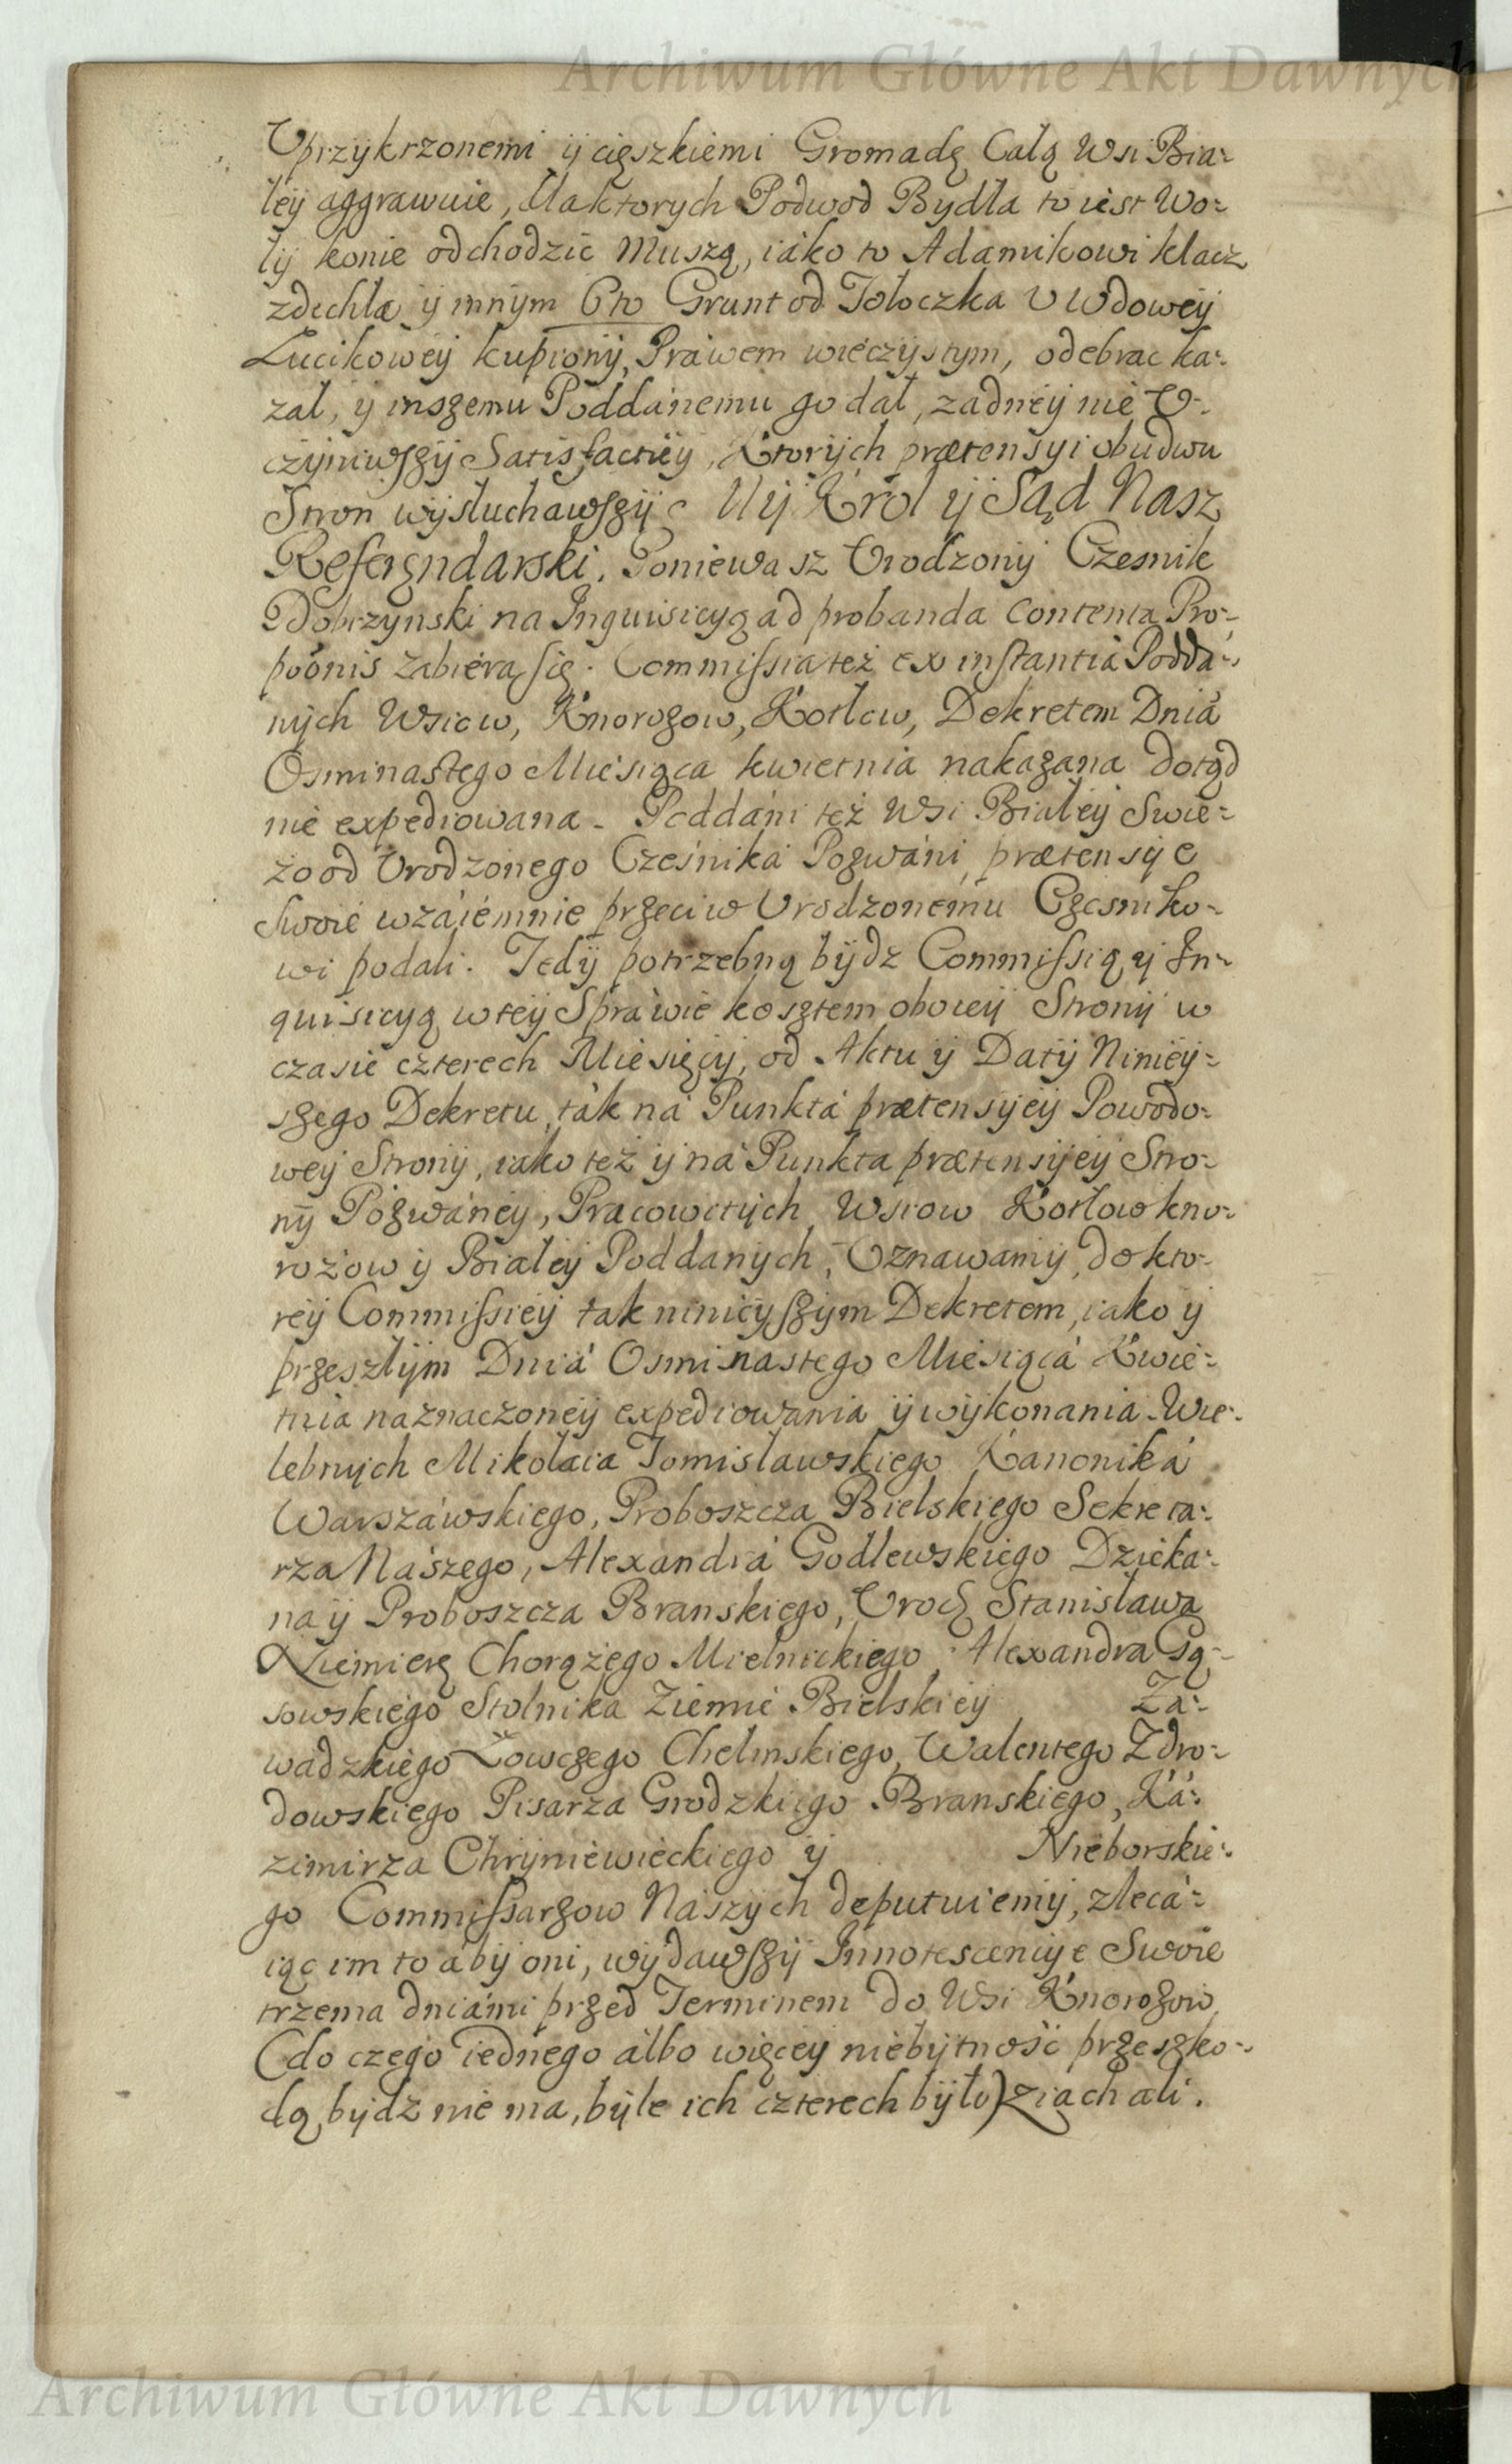 Archiwum Główne Akt Dawnych
Uprzykrzonemi ÿ cięszkiemi Gromadę Całą Wsi Bia-
łeÿ aggrawuie, Naktorych Podwod Bydła to iest Wo-
łÿ konie odchodzić Muszą, iáko to Adamikowi klacz
zdechła ÿ innÿm 6to Grunt od Tołoczka U Wdoweÿ
Łucikoweÿ kupionÿ, Prawem wieczÿstÿm, odebrac ka-
zał, ÿ inszemu Poddánemu go dał, zadneÿ nie U-
czÿniwszÿ Satisfactieÿ, Ktorÿch prætensyi obudwu
Stron wÿsłuchawszÿ Mÿ Krol ÿ Sąd Nasz
Referęndarski. Poniewasz Urodzonÿ Czesnik
Dobrzynski na Inquisicyą ad probanda contenta Pro-
poonis zabiera się. Commissia też ex instantia Podda-
nÿch Wsiow, Knorozow, Kotłow, Dekretem Dniá
Osminastego Miesiąca kwietnia nakazana dotąd
nie expediowana. Poddáni też Wsi Białeÿ Swie-
żo od Urodzonego Cześniká Pozwáni, prætensÿe
Swoie wzáiemnie przeciw Urodzonemu Czesniko-
wi podali. Tedÿ potrzebną bÿdz Commissią ÿ In-
quisicyą w teÿ Spráwie kosztem oboieÿ Stronÿ w
czasie czterech Miesięcÿ, od Aktu ÿ Datÿ Ninieÿ-
szego Dekretu, ták ná Punktá prætensÿeÿ Powodo-
weÿ Stronÿ, iako też ÿ ná Punkta prætensÿeÿ Stro-
nÿ Pozwáneÿ, Pracowitÿch Wsiow Kotłow kno-
rożow ÿ Białeÿ Poddanÿch, Uznawamÿ, do kto-
reÿ Commissieÿ tak ninieÿszÿm Dekretem, iako ÿ
przeszłÿm Dniá Osminastego Miesiącá Kwie-
tnia naznaczoneÿ expediowania ÿ wÿkonania. Wie-
lebnÿch Mikołaia Tomisławskiego Kanoniká
Warszáwskiego, Proboszcza Bielskiego Sekreta-
rza Nászego, Alexandrá Godlewskiego Dzieka-
na ÿ Proboszcza Branskiego, Urodz Stanisława
Niemierę Chorążego Mielnickiego, Alexandra Gą-
sowskiego Stolnika Ziemie Bielskieÿ Zá-
wadzkiego Łowczego Chełmskiego, Walentego Zdro-
dowskiego Pisarza Grodzkiego Branskiego, Ká-
zimirza Chrÿniewieckiego ÿ Nieborskie-
go Commissarzow Nászÿch deputuiemÿ, zlecá-
iąc im to ábÿ oni, wÿdawszÿ Innotescencÿe Swoie
trzema dniámi przed Terminem do Wsi Knorozow,
(do czego iednego álbo więceÿ niebÿtność przeszko-
dą bÿdź nie ma, bÿle ich czterech bÿło) ziachali.
Archiwum Główne Akt Dawnych